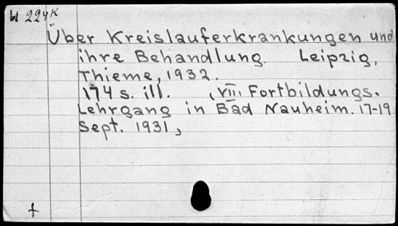 W 224K
Über Kreislauferkrankungen und
ihre Behandlung. Leipzig,
Thieme, 1932.
174 s. ill. (VIII, Fortbildungs-
Lehrgang in Bad Nauheim. 17-19
Sept. 1931,